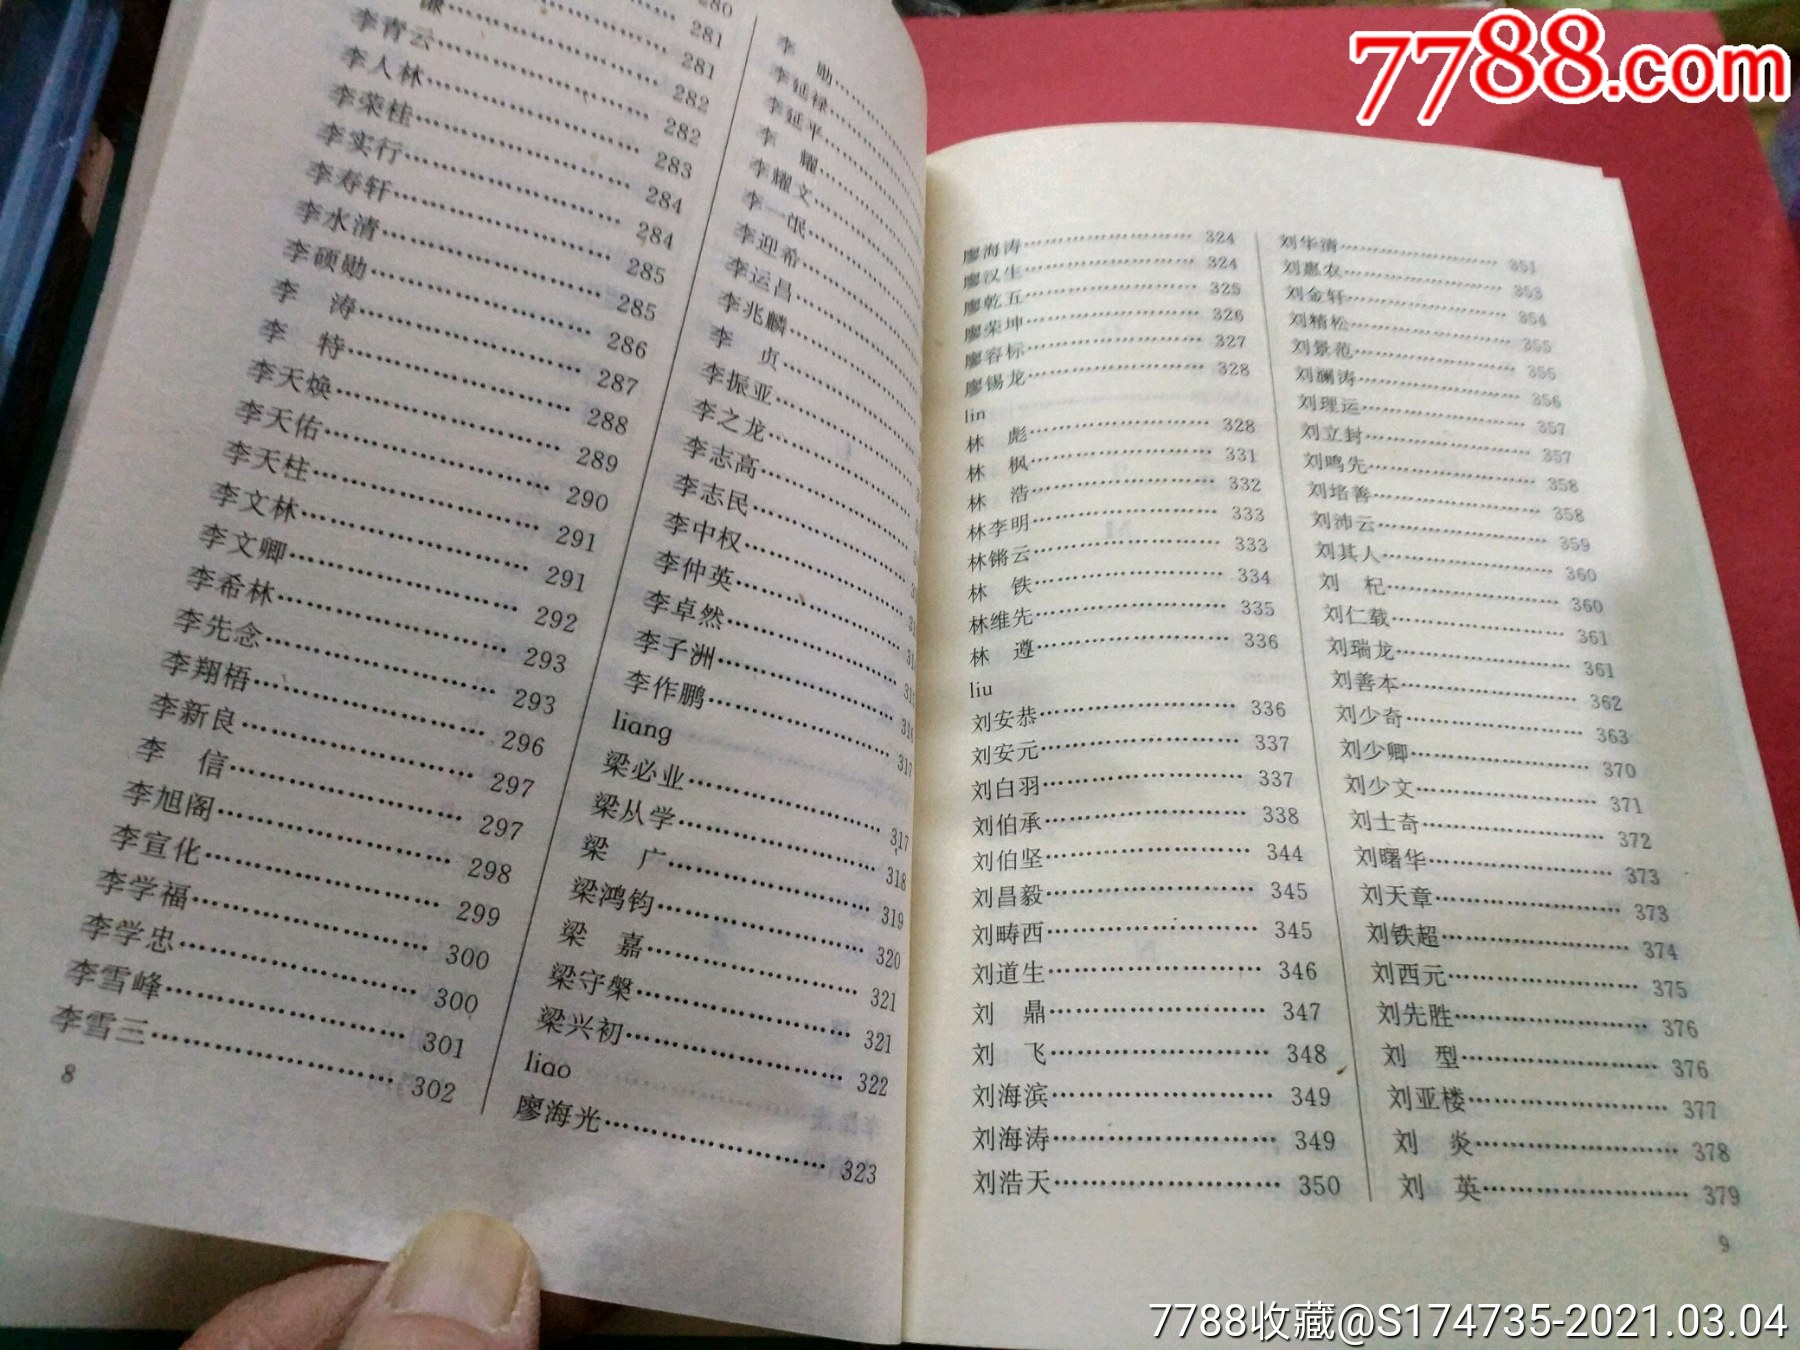 280
281
281
谦……………………282
李青云……………………282
李人林……………………283
李荣桂……………………284
李实行……………………284
李寿轩……………………285
李水清……………………285
李硕勋……………………286
李　涛……………………287
李　特……………………288
李天焕……………………289
李天佑……………………290
李天柱……………………291
李文林……………………291
李文卿……………………292
李希林……………………293
李先念……………………293
李翔梧……………………296
李新良……………………297
李　信……………………297
李旭阁……………………298
李宣化……………………299
李学福……………………300
李学忠……………………300
李雪峰……………………301
李雪三……………………302
8
李　勋……………………
李延禄……………………
李延平……………………
李　耀……………………
李耀文……………………
李一氓……………………
李迎希……………………
李运昌……………………
李兆麟……………………
李　贞……………………
李振亚……………………
李之龙……………………
李志高……………………
李志民……………………
李中权……………………
李仲英……………………
李卓然……………………
李子洲……………………316
李作鹏……………………317
liang
梁必业……………………317
梁从学……………………318
梁　广……………………319
梁鸿钧……………………320
梁　嘉……………………321
梁守槃……………………321
梁兴初……………………322
liao
廖海光……………………323
廖海涛……………………324
廖汉生……………………324
廖乾五……………………325
廖荣坤……………………326
廖容标……………………327
廖锡龙……………………328
lin
林　彪……………………328
林　枫……………………331
林　浩……………………332
林李明……………………333
林锵云……………………333
林　铁……………………334
林维先……………………335
林　遵……………………336
liu
刘安恭……………………336
刘安元……………………337
刘白羽……………………337
刘伯承……………………338
刘伯坚……………………344
刘昌毅……………………345
刘畴西……………………345
刘道生……………………346
刘　鼎……………………347
刘　飞……………………348
刘海滨……………………349
刘海涛……………………349
刘浩天……………………350
刘华清……………………351
刘惠农……………………353
刘金轩……………………354
刘精松……………………355
刘景范……………………355
刘澜涛……………………356
刘理运……………………357
刘立封……………………357
刘鸣先……………………358
刘培善……………………358
刘沛云……………………359
刘其人……………………360
刘　杞……………………360
刘仁载……………………361
刘瑞龙……………………361
刘善本……………………362
刘少奇……………………363
刘少卿……………………370
刘少文……………………371
刘士奇……………………372
刘曙华……………………373
刘天章……………………373
刘铁超……………………374
刘西元……………………375
刘先胜……………………376
刘　型……………………376
刘亚楼……………………377
刘　炎……………………378
刘　英……………………379
9
7788.com
7788收藏@S174735-2021.03.04